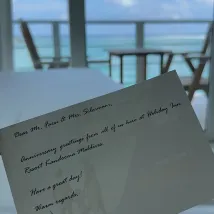 Dear Mr. & Mrs.
Anniversary greetings from all of us here at Holiday Inn
Resort Kandooma Maldives.
Have a great day!
Warm regards,